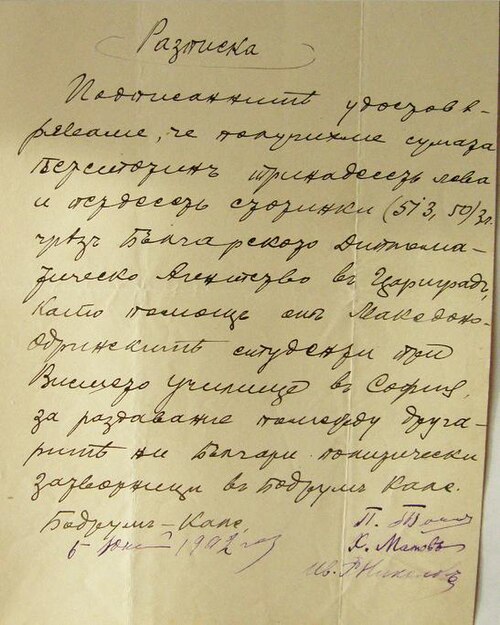 Разписка
Подписаннитѣ удостов-
ряваме, че получихме сумата
петстотинъ тринадесеть лева
и петдесеть стотинки (513, 50) зл.
чрѣзъ Българского Диплома-
тическо Агентство въ Цариградъ,
като помощь отъ Македоно-
Одринскитѣ студенти при
Висшето училище въ София,
за раздавание помежду друга-
ритѣ ни Българи политически
затворници въ Бодрумъ Кале.
Бодрумъ-Кале,
5 Юний 1902 год
П. Тошев
Х. Матовъ
Ив. Р. Николовъ